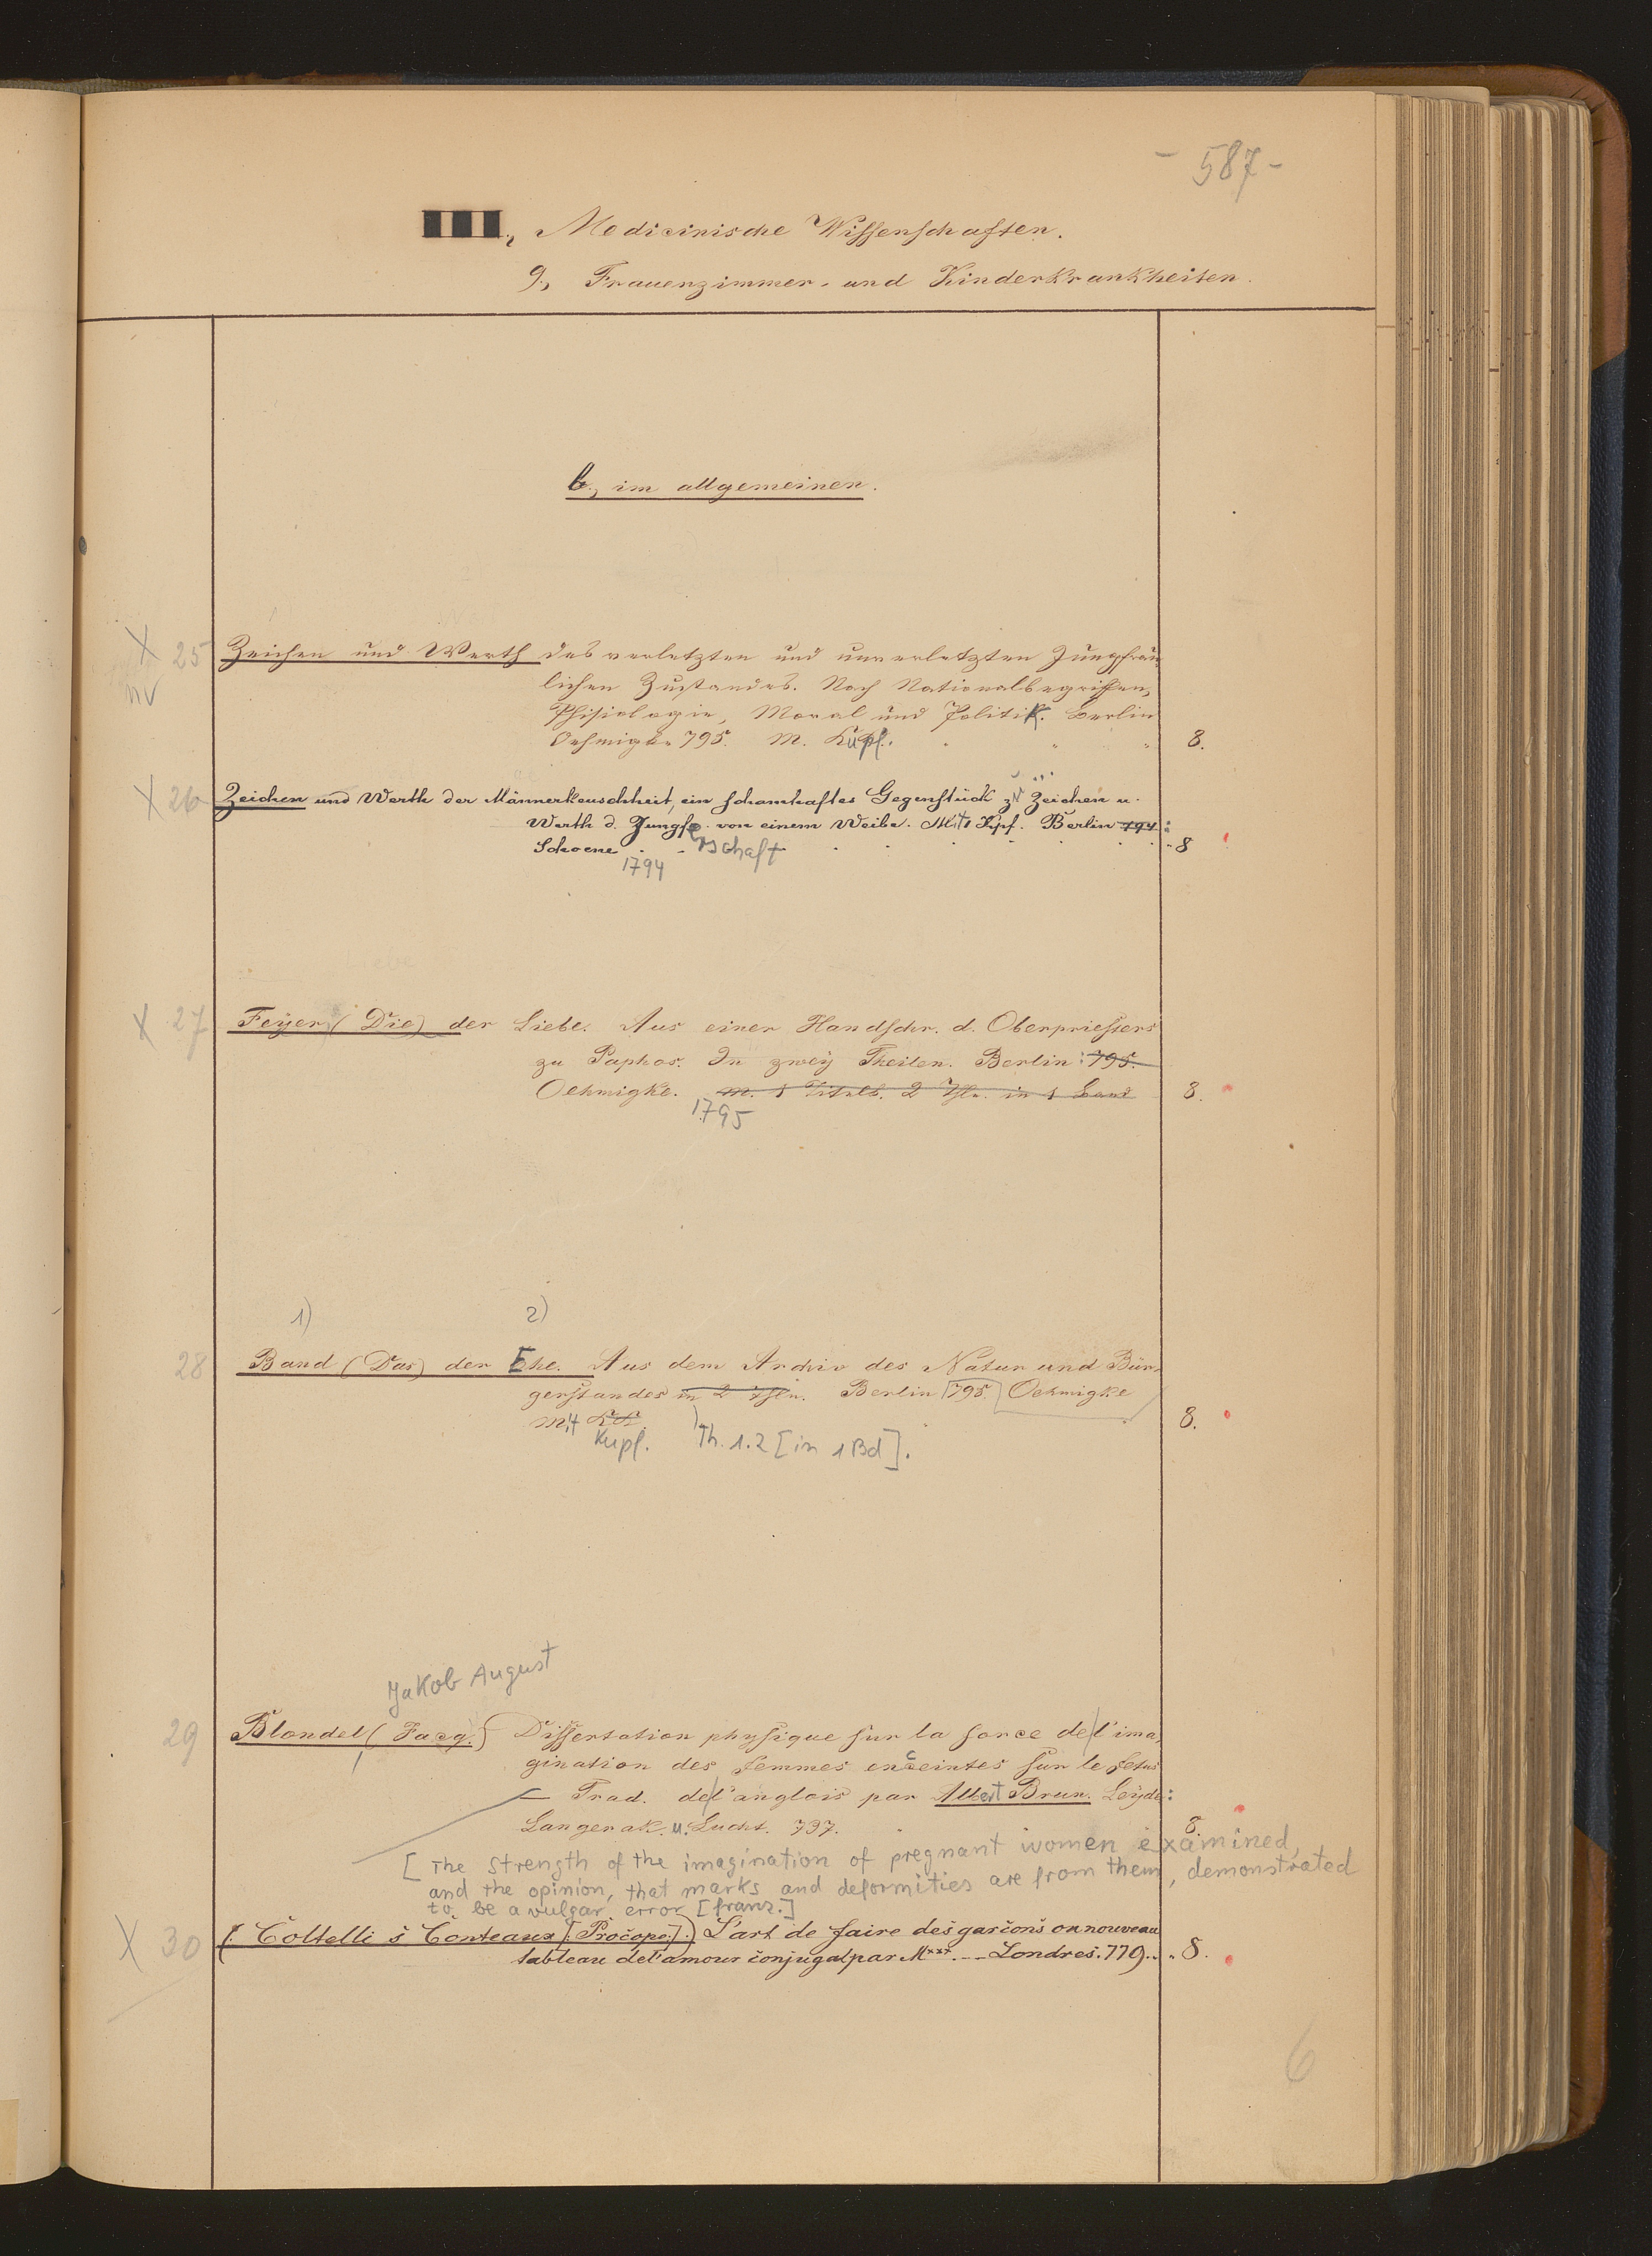 - 587 -
III., Medicinische Wissenschaften.
9., Frauenzimmer- und Kinderkrankheiten.
b., im allgemeinen.
X 25 Zeichen und Werth des verletzten und unverletzten Jungfräu
nv lichen Zustandes. Nach Nationalbegriffen,
Phisiologie, Moral und Politik. Berlin
Oehmigke 795. M. Kupf. 8.
X 26 Zeichen und Werth der Männerkeuschheit, ein schamhaftes Gegenstück zu Zeichen u.
Werth d. Jungfer von einem Weibe. Mit 1 Kpf. Berlin 794 :
Schoene rschaft 8
1794
X 27 Feyer (Die) der Liebe. Aus einer Handschr. d. Oberpriesters
zu Paphos. In zwey Theilen. Berlin: 795.
Oehmigke. m. 1 Titelk. 2 Thle. in 1 Band 8.
1795
1) 2)
28 Band (Das) der Ehe. Aus dem Archiv des Natur und Bür-
gerstandes in 2 Thln. Berlin 795. Oehmigke
Mit KK. 8.
Kupf. Th. 1.2 [in 1 Bd].
Jakob August
29 Blondel (Jacq.) Dissertation physique sur la force de l'ima
gination des femmes enceintes sur le fetus
— Trad. de l'anglois par Albert Brun. Leyde:
Langerak. u. Lucht. 737. 8.
[The strength of the imagination of pregnant women examined,
and the opinion, that marks and deformities are from them, demonstrated
to be a vulgar error [franz.]
X 30 (Coltelli s Conteaux [Procope].) L'art de faire des garcons ou nouveau
tableau de l'amour conjugal par M*** Londres. 779. 8.
6